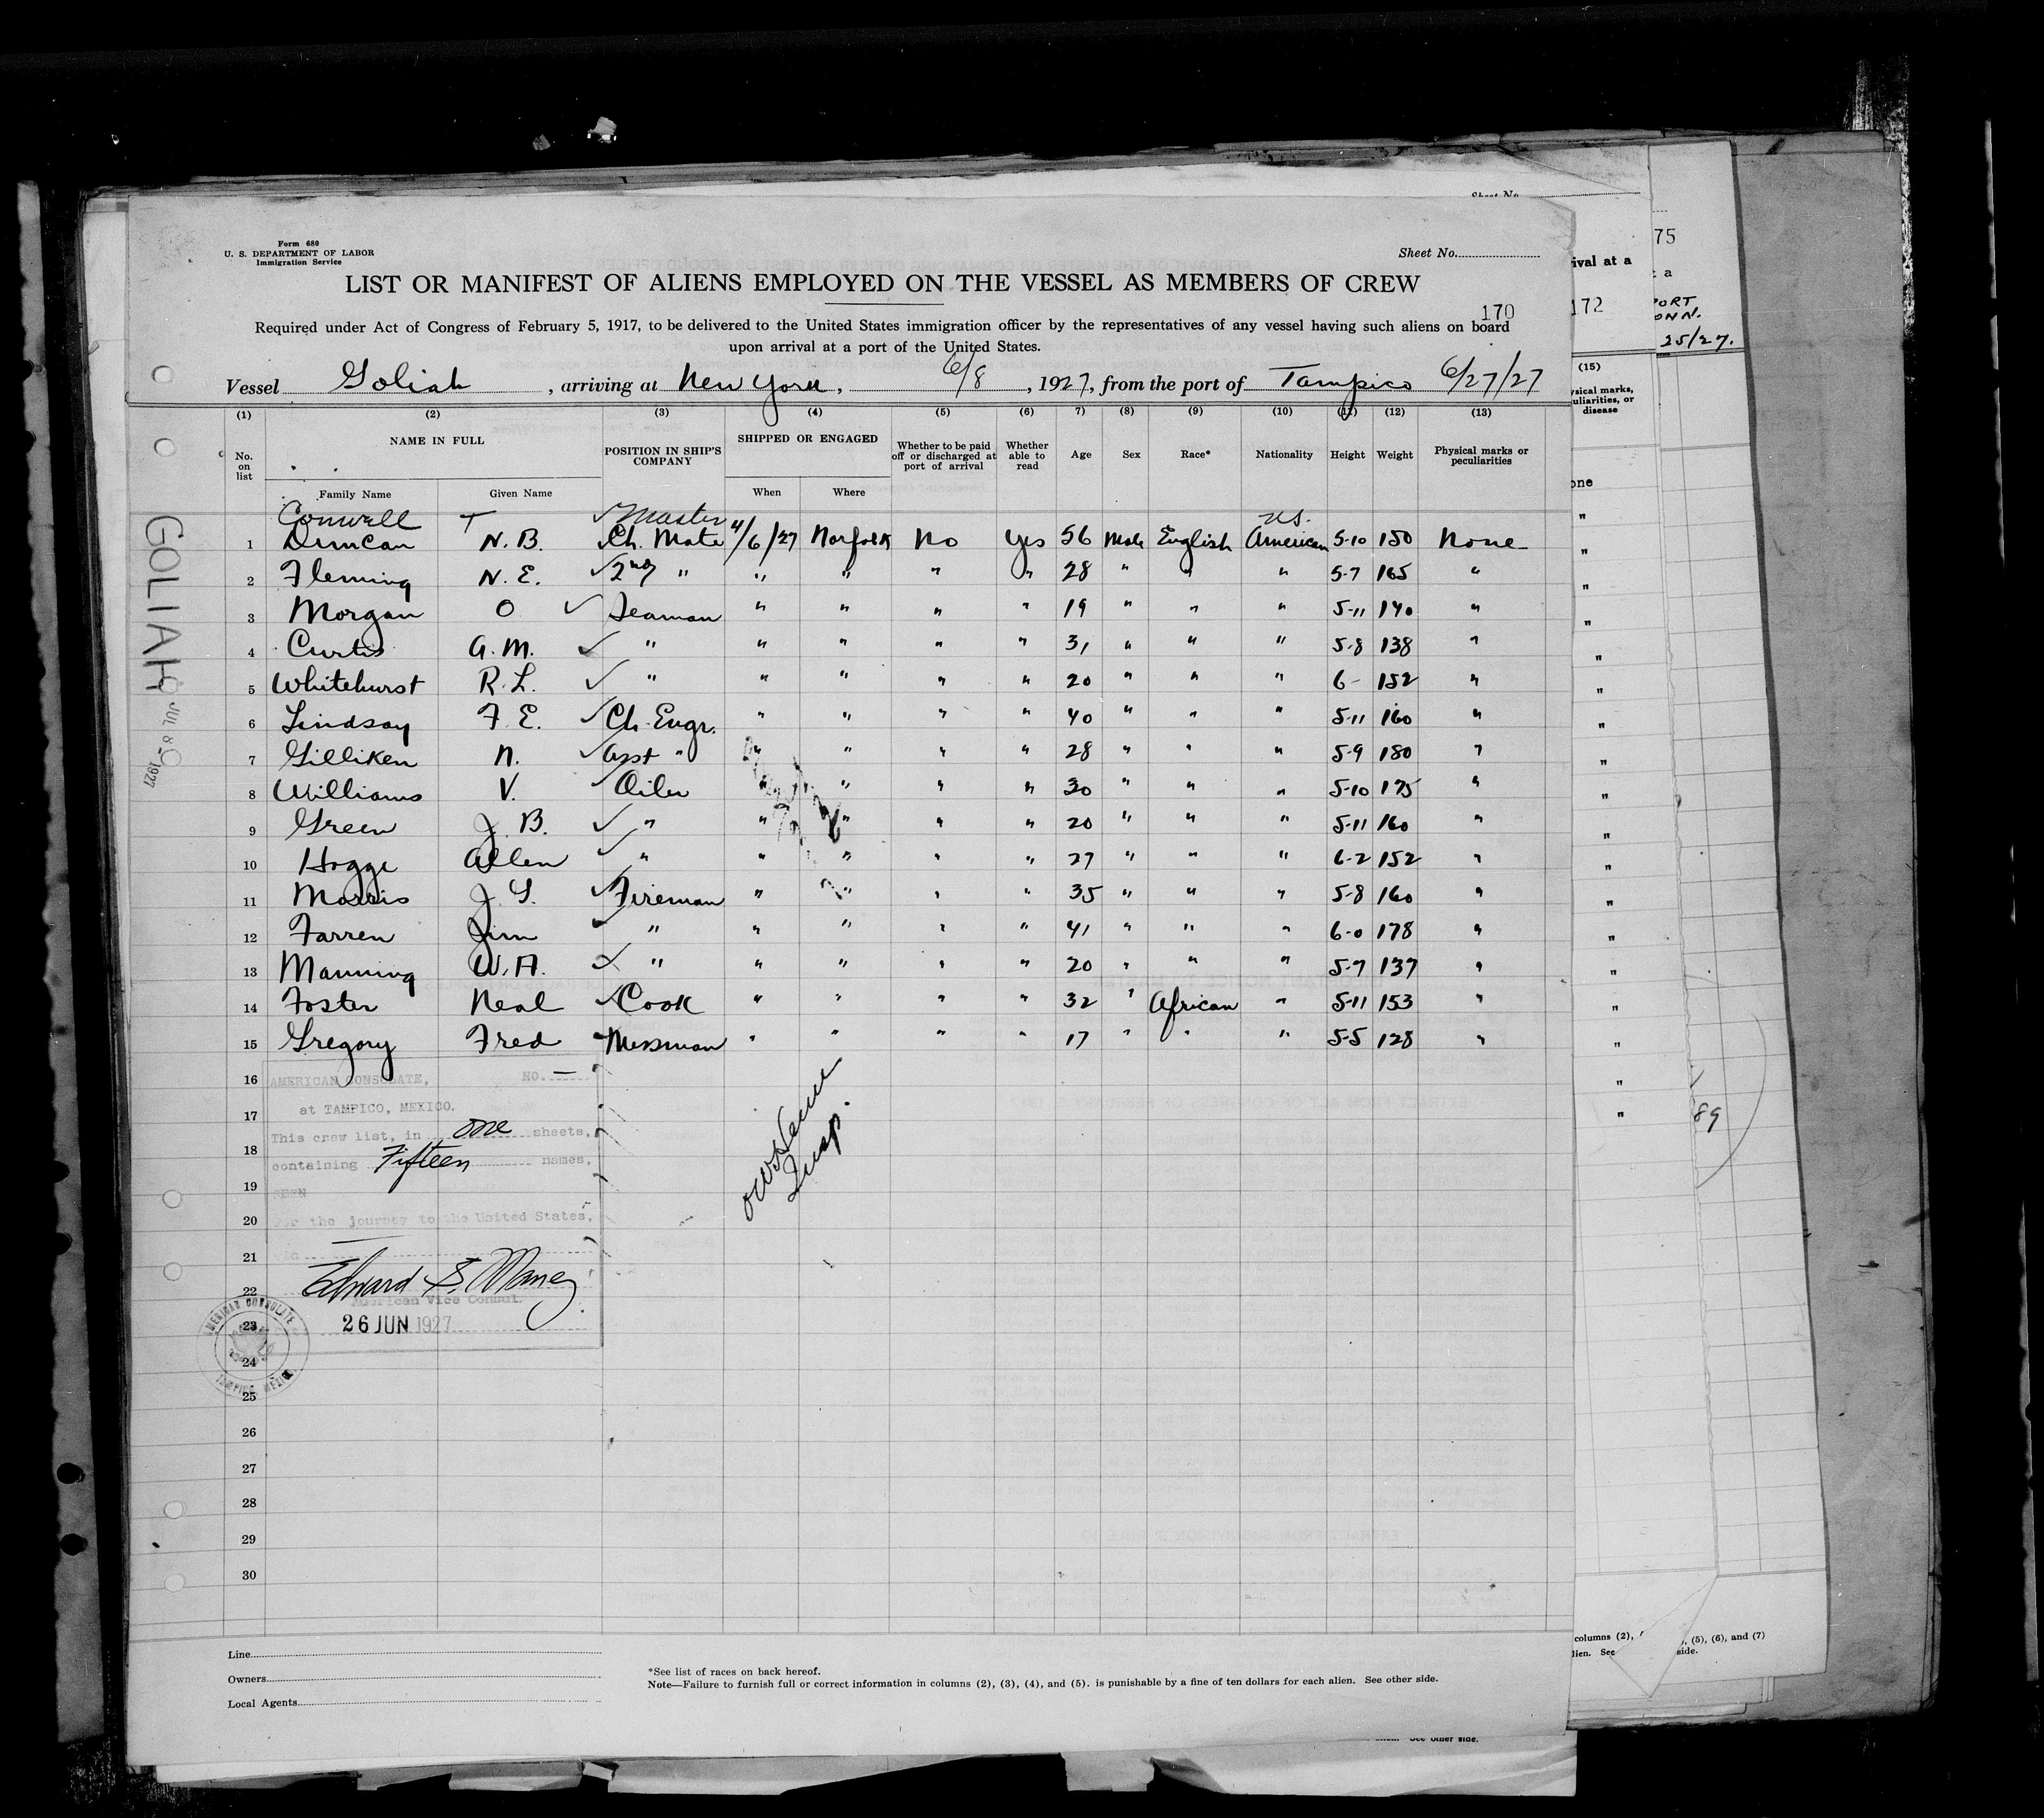 Sheet No.
Form 680
U. S. DEPARTMENT OF LABOR
Immigration Service
Sheet No.
LIST OR MANIFEST OF ALIENS EMPLOYED ON THE VESSEL AS MEMBERS OF CREW
170
Required under Act of Congress of February 5, 1917, to be delivered to the United States immigration officer by the representatives of any vessel having such aliens on board
upon arrival at a port of the United States.
Vessel Goliah, arriving at New York, 6/8, 1927, from the port of Tampico 6/27/27
(1) (2) (3) (4) (5) (6) 7) (8) (9) (10) (11) (12) (13)
No. on list NAME IN FULL Family Name Given Name POSITION IN SHIP'S COMPANY SHIPPED OR ENGAGED When Where Whether to be paid off or discharged at port of arrival Whether able to read Age Sex Race* Nationality Height Weight Physical marks or peculiarities
Conwell T Master U.S.
1 Duncan N. B. Ch. Mate 4/6/27 Norfolk No Yes 56 Male English American 5-10 150 None
2 Fleming N. E. 2nd " " " " " 28 " " " 5-7 165 "
3 Morgan O Seaman " " " " 19 " " " 5-11 140 "
4 Curtis A. M. " " " " " 31 " " " 5-8 138 "
5 Whitehurst R. L. " " " " " 20 " " " 6- 152 "
6 Lindsay F. E. Ch. Engr. " " " " 40 " " " 5-11 160 "
7 Gilliken N. Asst " " " " " 28 " " " 5-9 180 "
8 Williams V. Oiler " " " " 30 " " " 5-10 175 "
9 Green J. B. " " " " " 20 " " " 5-11 160 "
10 Hogge Allen " " " " " 27 " " " 6-2 152 "
11 Morris J. Fireman " " " " 35 " " " 5-8 160 "
12 Farren Jim " " " " " 41 " " " 6-0 178 "
13 Manning W. A. " " " " " 20 " " " 5-7 137 "
14 Foster Neal Cook " " " " 32 " African " 5-11 153 "
15 Gregory Fred Messman " " " " 17 " " " 5-5 128 "
16
17
18
19
20
21
22
23
24
25
26
27
28
29
30
AMERICAN CONSULATE, NO. —
at TAMPICO, MEXICO.
This crew list, in one sheets,
containing Fifteen names,
SEEN
For the journey to the United States,
Edward S. Maney
American Vice Consul.
26 JUN 1927
AMERICAN CONSULATE
TAMPICO MEXICO
Insp.
GOLIAH
JUL 8 1927
Line
Owners
Local Agents
*See list of races on back hereof.
Note—Failure to furnish full or correct information in columns (2), (3), (4), and (5). is punishable by a fine of ten dollars for each alien. See other side.
ival at a
172
(15)
sical marks,
uliarities, or
disease
one
75
a
PORT
ONN.
25/27.
89
columns (2), (5), (6), and (7)
lien. See side.
See other side.